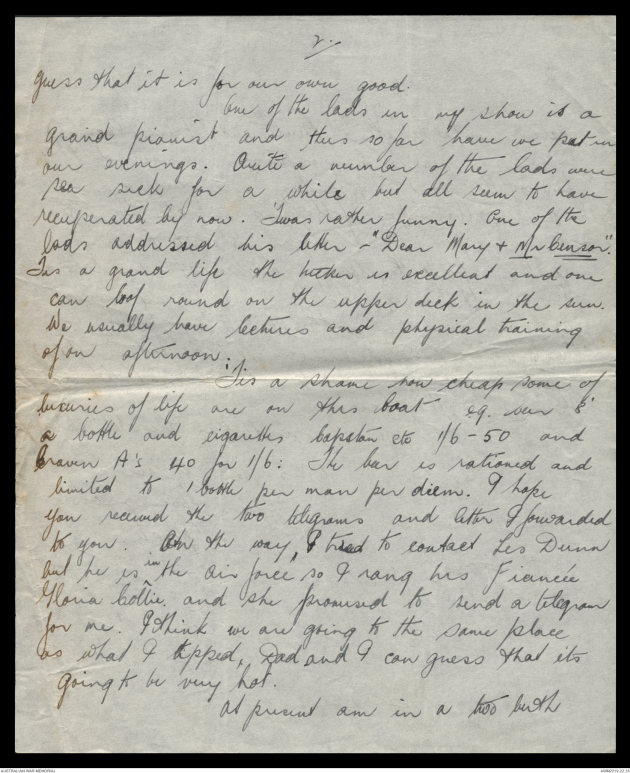 2.
guess that it is for our own good.
One of the lads in my show is a
grand pianist and thus so far have we put in
our evenings. Quite a number of the lads were
sea sick for a while but all seem to have
recuperated by now. 'Twas rather funny. One of the
lads addressed his letter - "Dear Mary & Mr Censor".
Tis a grand life the tucker is excellent and one
can loaf round on the upper deck in the sun.
We usually have lectures and physical training
of an afternoon.
'Tis a shame how cheap some of
luxuries of life are on this boat eg.
a bottle and cigarettes Capstan etc 1/6 - 50 and
Craven A's 40 for 1/6: The bar is rationed and
limited to 1 bottle per man per diem. I hope
you received the two telegrams and letter I forwarded
to you. On the way, I tried to contact Les Dunn
but he is in the air force, so I rang his Fiancée
Gloria Collie and she promised to send a telegram
for me. I think we are going to the same place
as what I tipped, Dad and I can guess that its
going to be very hot.
At present am in a two berth
AUSTRALIAN WAR MEMORIAL